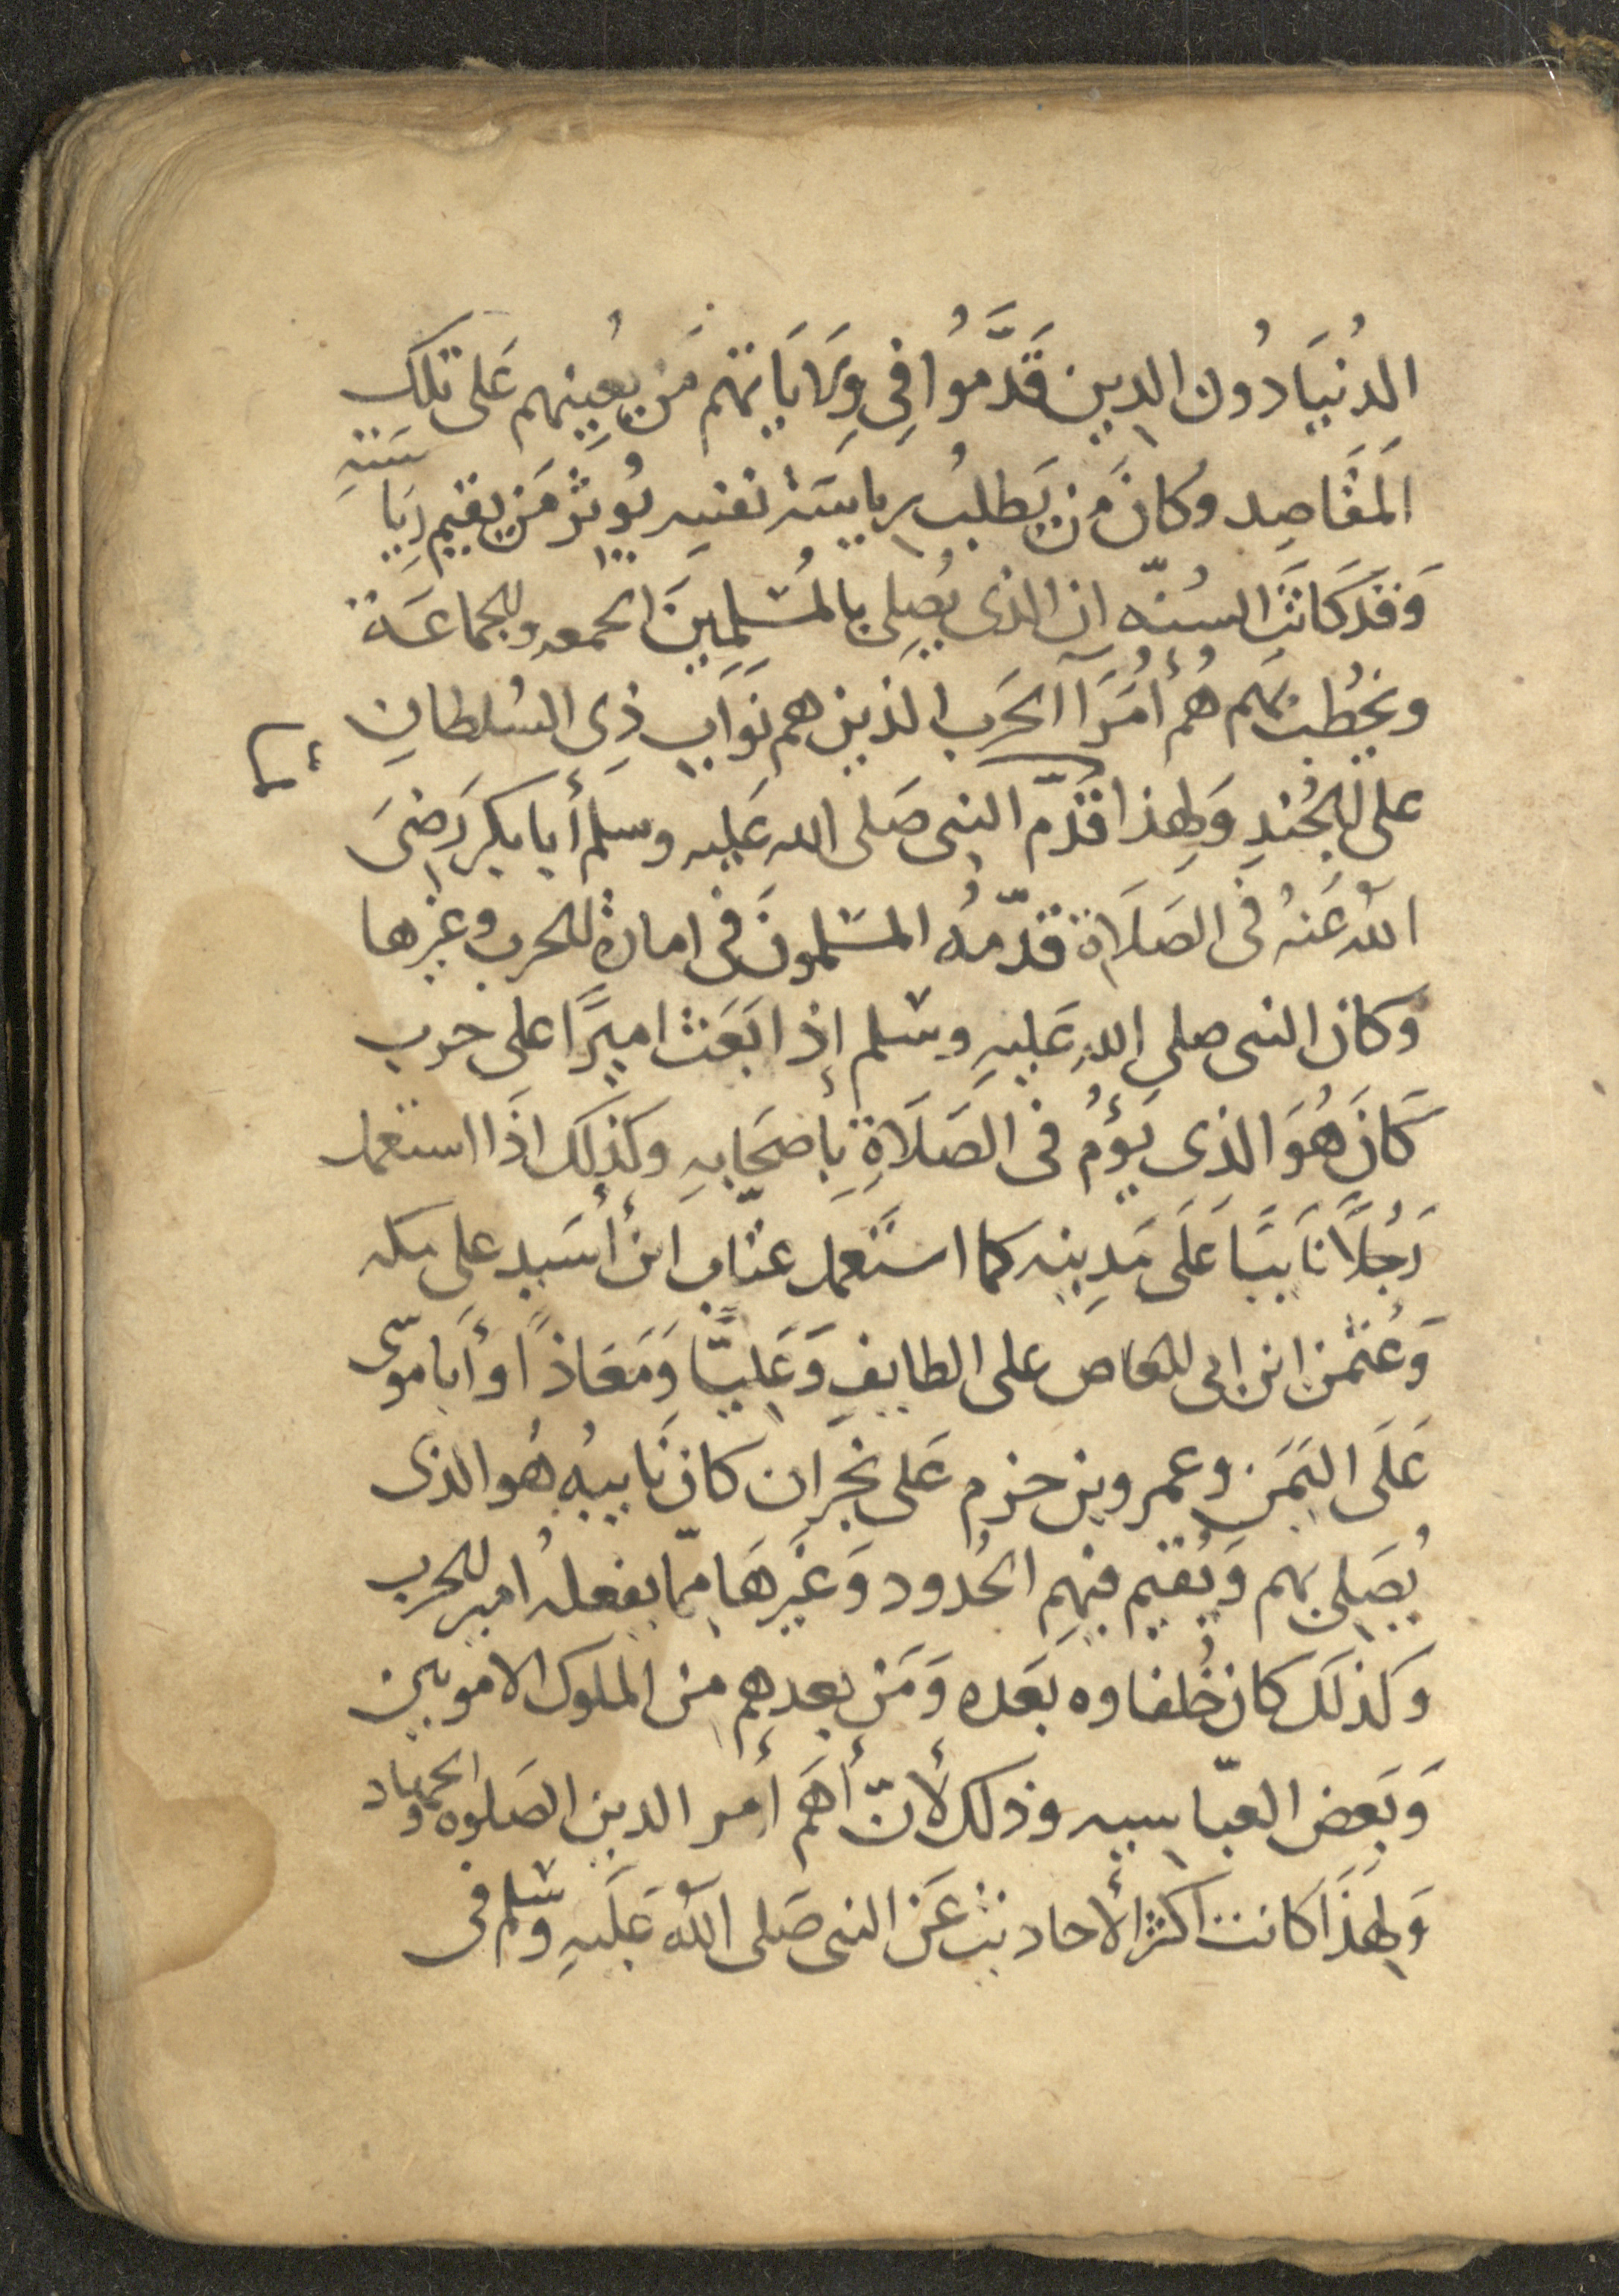 الدُنيَا دُون الدِين قَدَّمُوا فِي وِلَايَاتهم مَن يُعِينهم عَلى تلك
المَقَاصِد وكان مَن يَطلبُ رِيايسَة نفسِه يُوثر مَن يقيم رِيَاسَتهِ
وَقَد كَانت السُنّه ان الذى يُصِلى بالمُسْلِمِينَ الجمعه والجماعَة
ويخطُب بهم هُم أُمَرَآ الحَرب الذين هم نوَّاب ذِى السُلطانِ
على الجُندِ وَلِهذا قدّم النبى صَلى الله عَليه وسلم أبا بكر رَضىَ
اللهُ عَنهُ فى الصَلَاة قدّمهُ المسْلمونَ فى امارةِ الحرب وغيرها
وكان النبى صلى الله عَليهِ وسْلم إذا بَعَث اميرًا على حرب
كَانَ هُوَ الذى يَؤُم فى الصَلَاةِ بِأصحَابهِ وكذلك اذَا استعمل
رَجُلاً نَايبًا عَلَى مَدِينه كما استَعمل عتّاب ابن أُسَيد على مكه
وَعُثمٰن ابن ابى العاص على الطايفِ وَعَليًّا وَمَعَاذًا وأبَا موسّى
عَلَى اليَمَن وعمرو بن حزم عَلى نَجرَان كان نَايبهُ هُو الذى
يُصَلى بهم وَيُقيم فيهِم الحُدود وَغَيرِهَا ممّا يفعلهُ امير الحرب
وكذلَك كان خُلفاوه بَعَده وَمَن بعدِهم من الملوك الامويين
وَبَعض العبّاسيه وذلك لأنّ أهَم أمر الدين الصَلوه والجهاد
وَلِهذَا كانت اكثر الأحاديث عَن النبى صَلى اللهُ عَلَيهِ وسْلم فى